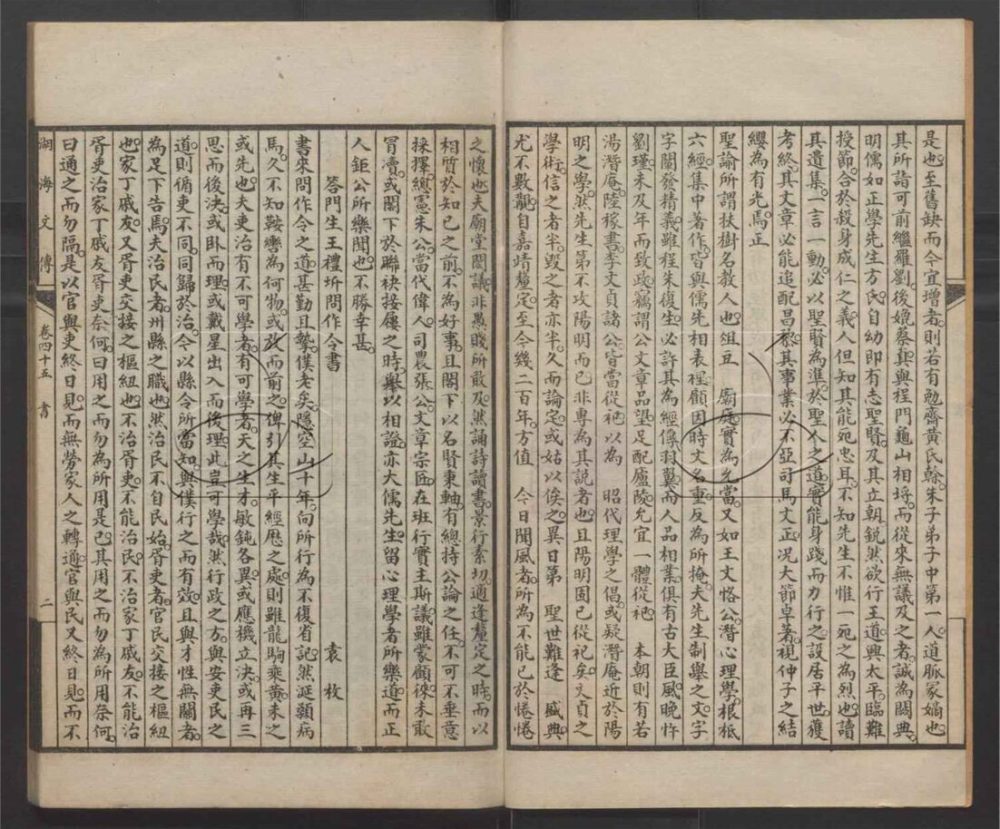 是也至舊缺而今宜增者則若有勉齋黃氏榦朱子弟子中第一人道脈冢嫡也
其所詣可前繼羅劉後媲蔡真與程門龜山相埒而從來無議及之者誠為闕典
明儒如正學先生方氏自幼即有志聖賢及其立朝銳然欲行王道興太平臨難
授節合於殺身成仁之義人但知其能死忠耳不知先生不惟一死之為烈也讀
其遺集一言一動必以聖賢為準於聖人之道實能身踐而力行之設居平世獲
考終其文章必能追配昌黎其事業必不亞司馬文正況大節卓著視仲子之結
纓為有光焉正
聖諭所謂扶樹名教人也俎豆 廟庭實為允當又如王文恪公潛心理學根柢
六經集中著作寔與儒先相表裡顧因時文名重反為所掩夫先生制舉之文字
字闡發精義雖程朱復生必許其為經傳羽翼而人品相業俱有古大臣風晚忤
劉瑾未及年而致政竊謂公文章品望足配廬陵允宜一體從祀 本朝則有若
湯潛庵陸稼書李文貞諸公皆當從祀以為 昭代理學之倡或疑潛庵近於陽
明之學然先生第不攻陽明而已非專為其說者也且陽明固已從祀矣文貞之
學術信之者半毀之者亦半久而論定或姑以俟之異日第 聖世難逢 盛典
尤不數覯自嘉靖釐定至今幾二百年方值 今日聞風者所為不能已於惓惓
之懷也夫廟堂閎議非愚賤所敢及然誦詩讀書景行素切適逢釐定之時而以
相質於知己之前不為好事且閣下以名賢秉軸有總持公論之任不可不垂意
採擇總憲朱公當代偉人司農張公文章宗匠在班行實主斯議雖蒙顧徠未敢
冒瀆或閣下於聯袂接屨之時舉以相諗亦大儒先生留心理學者所樂道而正
人鉅公所樂聞也不勝幸甚
答門生王禮圻問作令書 袁 枚
書來問作令之道甚勤且摯僕老矣隱空山十年向所行為不復省記然涎頸病
馬久不知鞍轡為何物或放而前之俾引其生平經歷之處則雖龍駒乘黃未之
或先也夫吏治有不可學者有可學者天之生才敏鈍各異或應機立決或再三
思而後決或臥而理或戴星出入而後理此豈可學哉然行政之方與安吏民之
道則備吏不同同歸於治今以縣令所當知與僕行之而有效且與才性無關者
為足下告焉夫治民者州縣之職也然治民不自民始胥吏者官民交接之樞紐
也家丁戚友又胥吏交接之樞紐也不治胥吏不能治民不治家丁戚友不能治
胥吏治家丁戚友胥吏奈何曰用之而勿為所用是已其用之而勿為所用奈何
曰通之而勿隔是以官與吏終日見而無勞家人之轉通官與民又終日見而不
湖海文傳 卷四十五 書 二